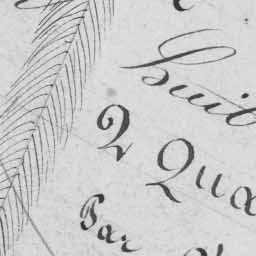 Suit
2 Qua
Par